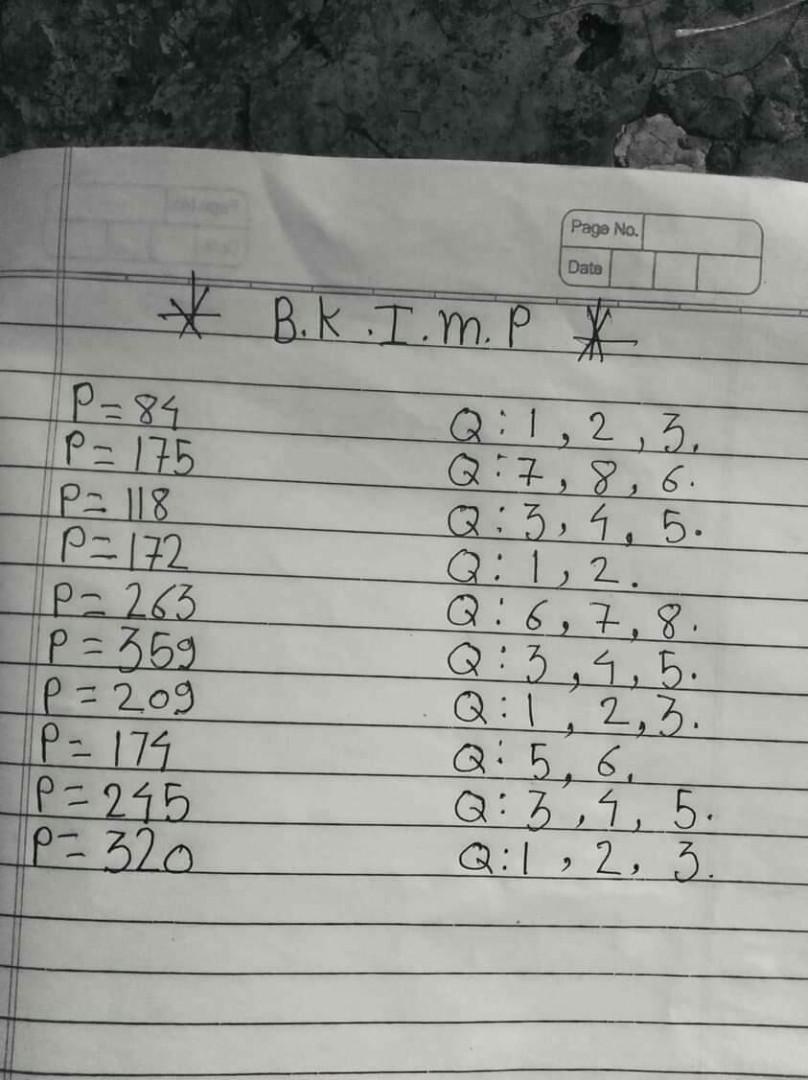 Page No.
Date
B.K.I.M.P
P=84 Q:1,2,3.
P=175 Q:7,8,6.
P=118 Q:3,4,5.
P=172 Q:1,2.
P=263 Q:6,7,8.
P=359 Q:3,4,5.
P=209 Q:1,2,3.
P=174 Q:5,6.
P=245 Q:3,4,5.
P=320 Q:1,2,3.